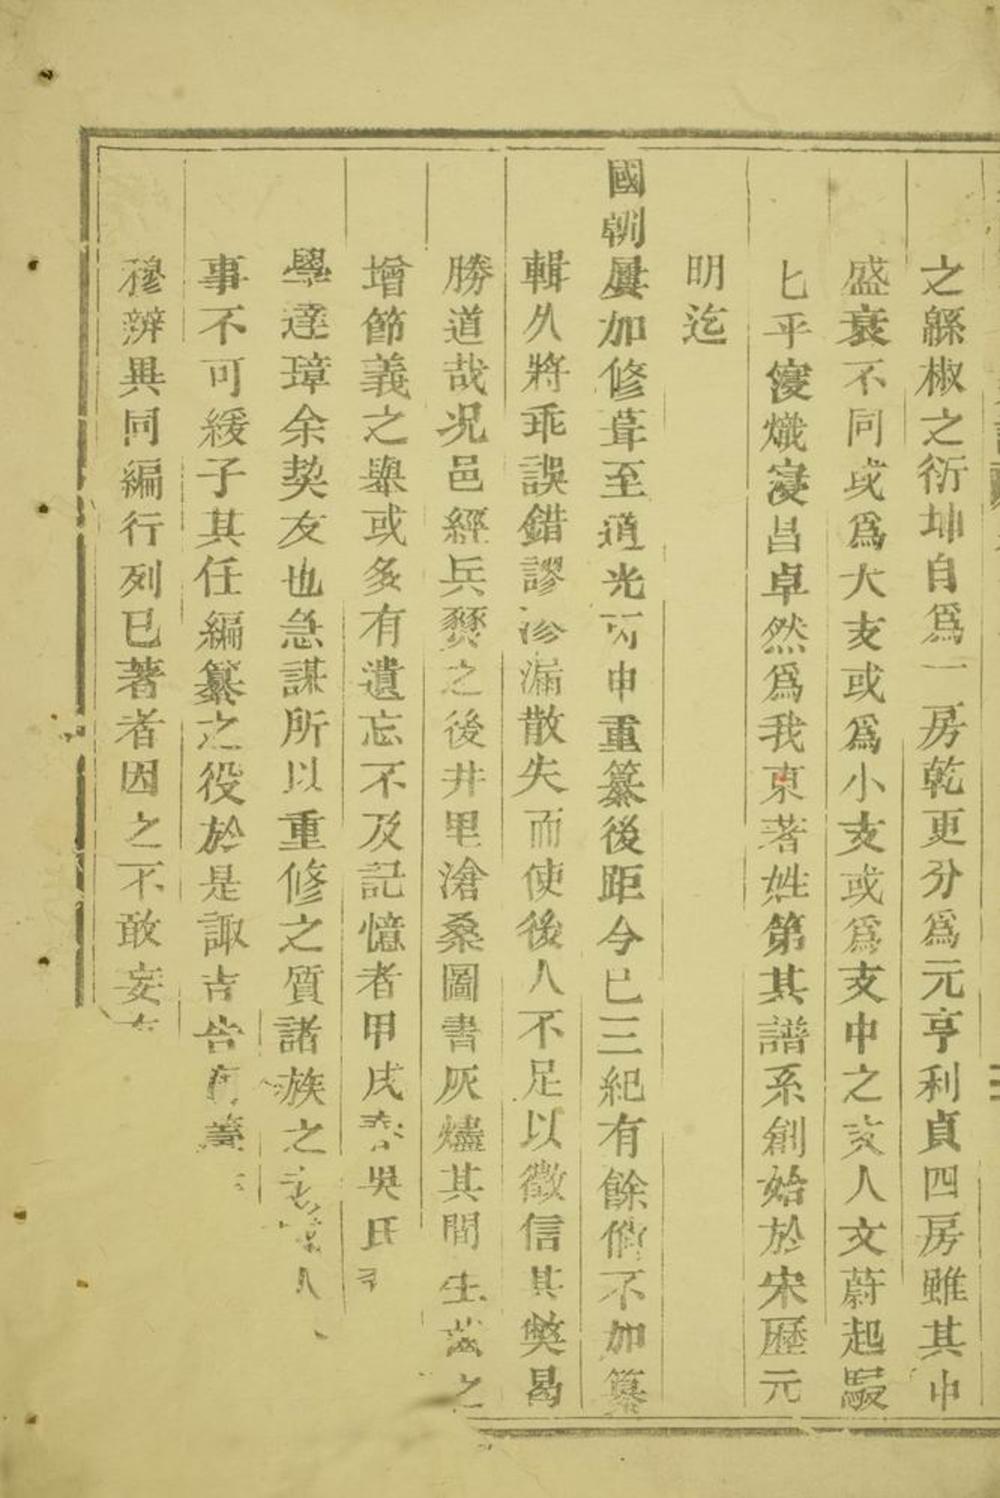 之緜椒之衍坤自爲一房乾更分爲元亨利貞四房雖其中
盛衰不同或爲大支或爲小支或爲支中之支人文蔚起駸
匕乎寖熾寖昌卓然爲我東著姓第其譜系創始於宋歷元
明迄
國朝屢加修葺至道光丙申重纂後距今已三紀有餘倘不加纂
輯久將乖誤錯謬滲漏散失而使後人不足以徵信其獘曷
勝道哉况邑經兵燹之後井里滄桑圖書灰燼其間生齒之
增節義之舉或多有遺忘不及記憶者甲戌春吳氏
學達璋余契友也急謀所以重修之質諸族之 人
事不可緩子其任編纂之役於是諏吉告
穆辨異同編行列已著者因之不敢妄